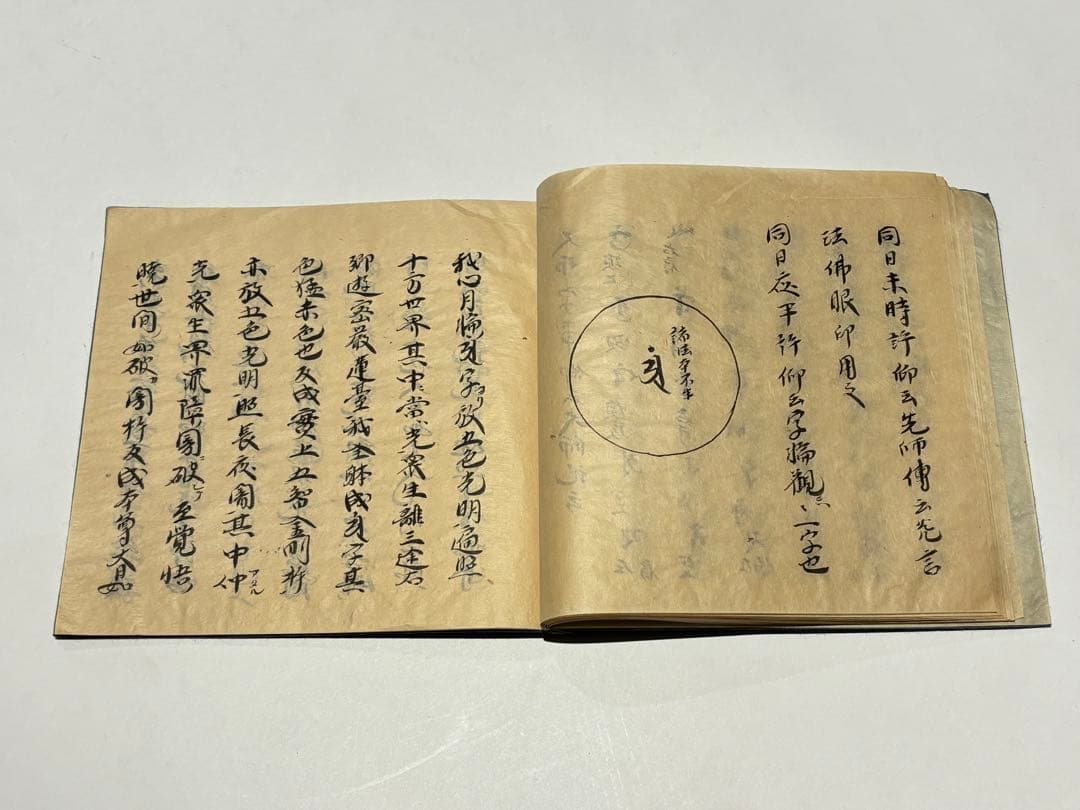 同日未時許仰云先師傳云先言
法佛眼印用之
同日夜半許仰云字輪觀 一字也
諸法本不生
我心月輪 字 放五色光明遍照
十方世界其中當光衆生離三途
遊密嚴蓮臺我全躰成 字其
色猛赤色也反成實上五智金剛杵
亦放五色光明照長夜闇其中
光衆生界 障闇破 至覺悟
曉世間 破闇杵反成本尊大日如